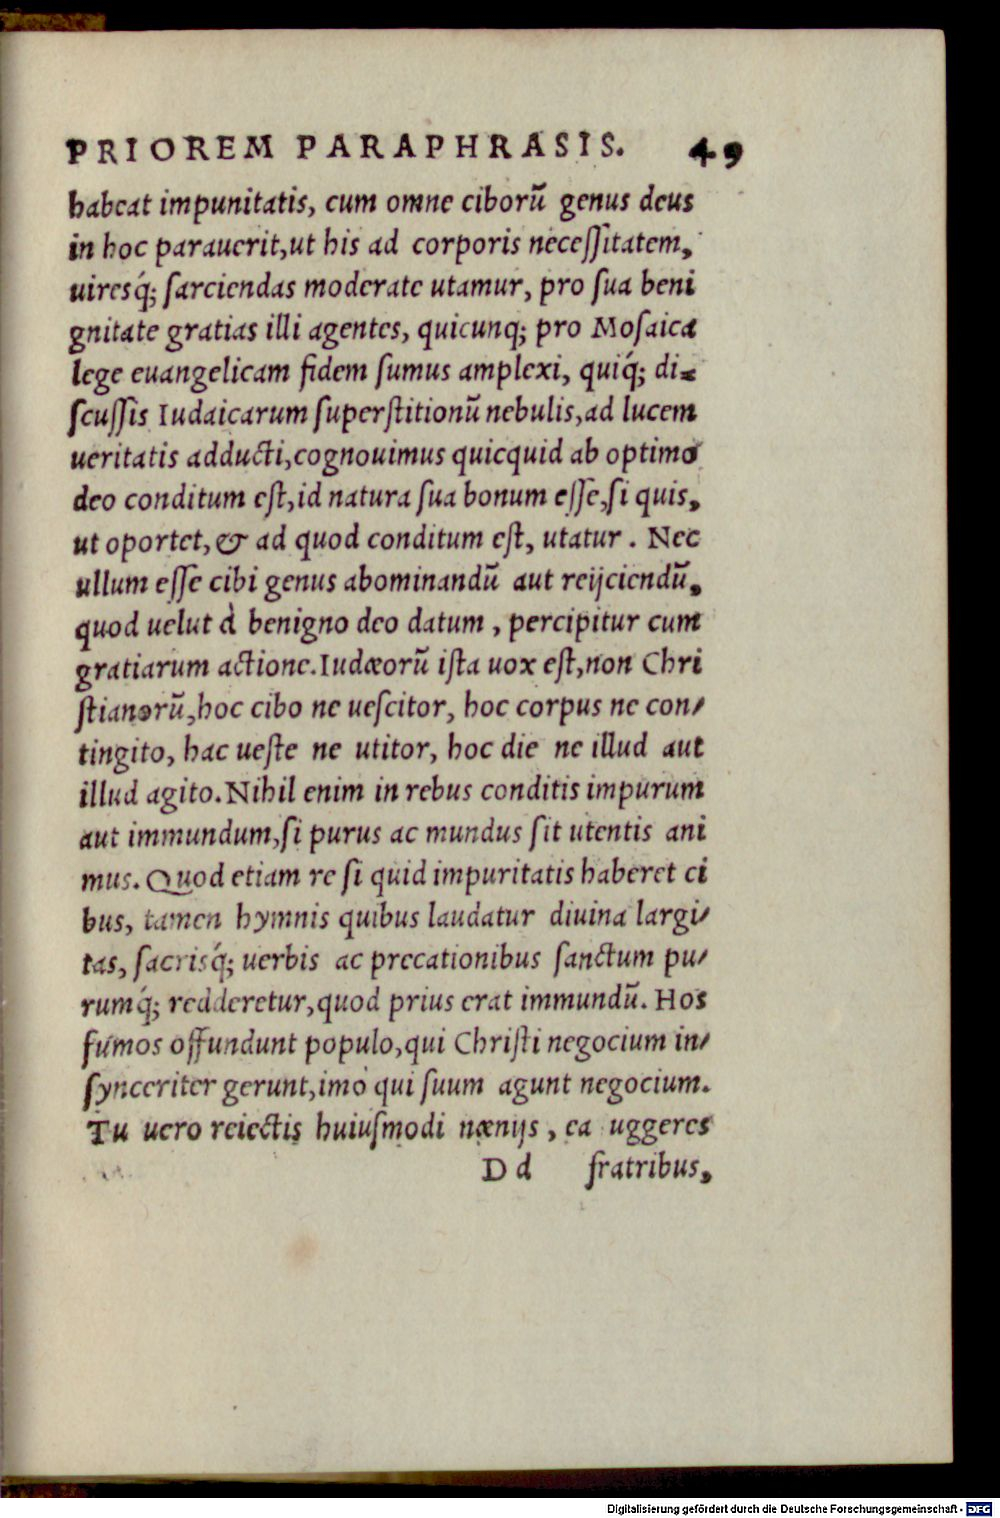 PRIOREM PARAPHRASIS. 49
habeat impunitatis, cum omne ciborũ genus deus
in hoc parauerit,ut his ad corporis neceſſitatem,
uiresq́; ſarciendas moderate utamur, pro ſua beni
gnitate gratias illi agentes, quicunq; pro Moſaica
lege euangelicam fidem ſumus amplexi, quiq́; di⸗
ſcuſſis Iudaicarum ſuperſtitionũ nebulis,ad lucem
ueritatis adducti,cognouimus quicquid ab optimo
deo conditum eſt,id natura ſua bonum eſſe,ſi quis,
ut oportet,& ad quod conditum eſt, utatur. Nec
ullum eſſe cibi genus abominandũ aut reijciendũ,
quod uelut à benigno deo datum, percipitur cum
gratiarum actione.Iudæorũ iſta uox eſt,non Chri
ſtianorũ,hoc cibo ne ueſcitor, hoc corpus ne con/
tingito, hac ueſte ne utitor, hoc die ne illud aut
illud agito.Nihil enim in rebus conditis impurum
aut immundum,ſi purus ac mundus ſit utentis ani
mus. Quod etiam re ſi quid impuritatis haberet ci
bus, tamen hymnis quibus laudatur diuina largi/
tas, ſacrisq́; uerbis ac precationibus ſanctum pu/
rumq́; redderetur,quod prius erat immundũ. Hos
fumos offundunt populo,qui Chriſti negocium in/
ſynceriter gerunt,imò qui ſuum agunt negocium.
Tu uero reiectis huiuſmodi nænijs, ea uggeres
D d fratribus,
Digitalisierung gefördert durch die Deutsche Forschungsgemeinschaft - DFG